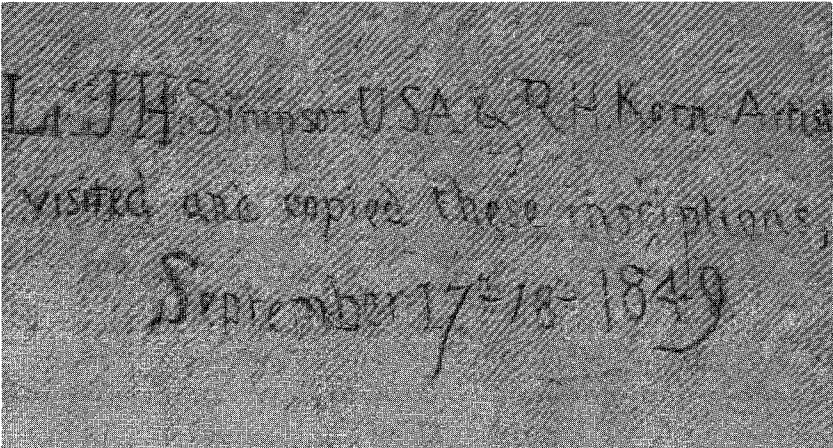 Lt. J H. Simpson USA & R.H. Kern Artist
visited and copied these insciptions,
September 17th 18th 1849